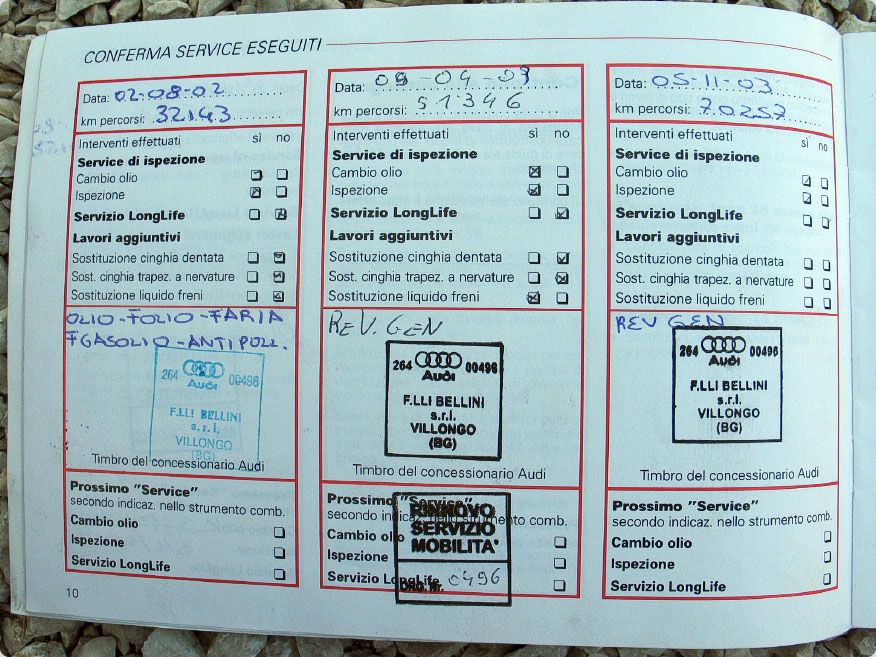 CONFERMA SERVICE ESEGUITI
Data: 02-08-02
km percorsi: 32143
Interventi effettuati sì no
Service di ispezione
Cambio olio
Ispezione
Servizio LongLife
Lavori aggiuntivi
Sostituzione cinghia dentata
Sost. cinghia trapez. a nervature
Sostituzione liquido freni
OLIO-FOLIO-FARIA
FGASOLIO-ANTIPOLL.
264 Audi 00496
F.LLI BELLINI
s.r.l.
VILLONGO
(BG)
Timbro del concessionario Audi
Prossimo "Service"
secondo indicaz. nello strumento comb.
Cambio olio
Ispezione
Servizio LongLife
10
Data: 09-04-03
km percorsi: 51346
Interventi effettuati sì no
Service di ispezione
Cambio olio
Ispezione
Servizio LongLife
Lavori aggiuntivi
Sostituzione cinghia dentata
Sost. cinghia trapez. a nervature
Sostituzione liquido freni
REV. GEN
264 Audi 00496
F.LLI BELLINI
s.r.l.
VILLONGO
(BG)
Timbro del concessionario Audi
Prossimo "Service"
secondo indicaz. nello strumento comb.
Cambio olio
Ispezione
Servizio LongLife
RINNOVO
SERVIZIO
MOBILITA'
ORG. Nr. 0496
Data: 05-11-03
km percorsi: 70257
Interventi effettuati sì no
Service di ispezione
Cambio olio
Ispezione
Servizio LongLife
Lavori aggiuntivi
Sostituzione cinghia dentata
Sost. cinghia trapez. a nervature
Sostituzione liquido freni
REV GEN
264 Audi 00496
F.LLI BELLINI
s.r.l.
VILLONGO
(BG)
Timbro del concessionario Audi
Prossimo "Service"
secondo indicaz. nello strumento comb.
Cambio olio
Ispezione
Servizio LongLife